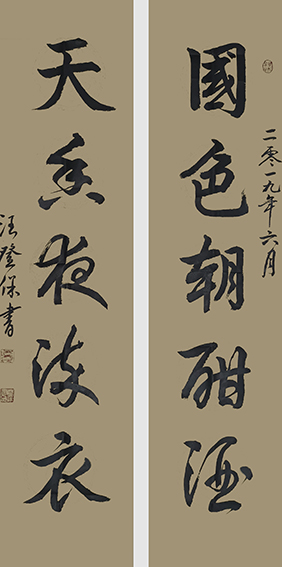 國色朝酣酒
二零一九年六月
天香夜染衣
汪登保書